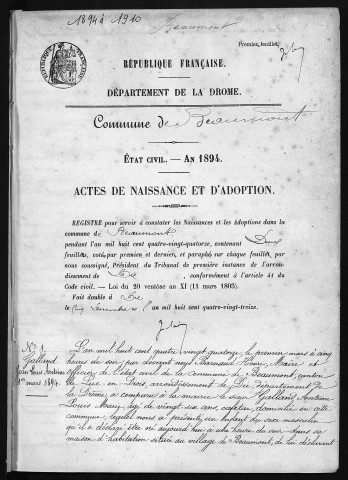 1894 à 1910
Beaumont
Premier feuillet,
RÉPUBLIQUE FRANÇAISE.
DÉPARTEMENT DE LA DROME.
Commune de Beaumont
ÉTAT CIVIL. — AN 1894.
ACTES DE NAISSANCE ET D'ADOPTION.
REGISTRE pour servir à constater les Naissances et les Adoptions dans la
commune de Beaumont
pendant l'an mil huit cent quatre-vingt-quatorze, contenant Deux
feuillets, coté par premier et dernier, et paraphé sur chaque feuillet, par
nous soussigné, Président du Tribunal de première instance de l'arron-
dissement de Die, conformément à l'article 41 du
Code civil. — Loi du 20 ventôse an XI (11 mars 1803).
Fait double à Die
le cinq Décembre an mil huit cent quatre-vingt-treize.
N° 1
Galland
Louis Antoine
1er mars 1894
L'an mil huit cent quatre vingt quatorze le premier mars à cinq
heures du soir par devant nous Barnaud Henri Maire et
officier de l'état civil de la commune de Beaumont, canton
de Luc en Diois, arrondissement de Die, département de
la Drôme, a comparu à la mairie le sieur Galland Antoine
Louis Maury âgé de vingt six ans, cafetier domicilié en cette
commune, lequel nous a présenté un enfant du sexe masculin
qu'il a déclaré être né aujourd'hui à une heure du soir, dans sa
maison d'habitation située au village de Beaumont, de lui déclarant